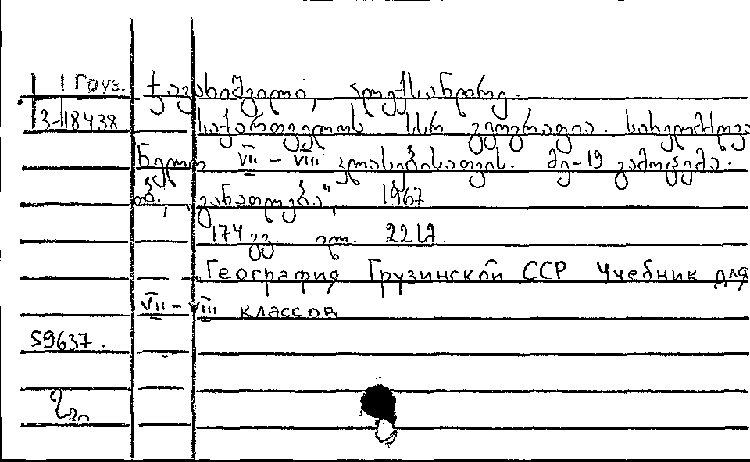 Груз.
ჯავახიშვილი, ალექსანდრე.
3-18438
საქართველოს სსრ გეოგრაფია. სახელმძღვა
ნელო VII – VIII კლასებისათვის. მე-19 გამოცემა.
თბ., „განათლება", 1967
174 გვ.
География Грузинской ССР Учебник для
VII – VIII классов
59637.